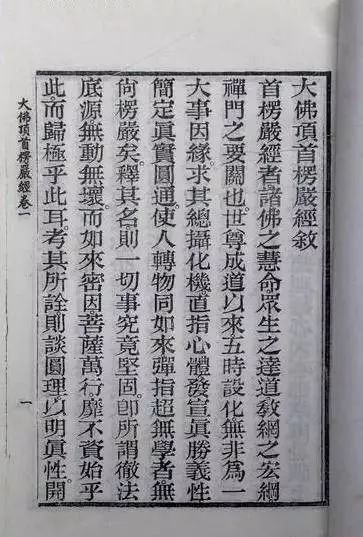 大佛頂首楞嚴經敘
首楞嚴經者諸佛之慧命眾生之達道教網之宏綱
禪門之要關也世尊成道以來五時設化無非為一
大事因緣求其總攝化機直指心體發宣眞勝義性
簡定眞實圓通使人轉物同如來彈指超無學者無
尙楞嚴矣釋其名則一切事究竟堅固卽所謂徹法
底源無動無壞而如來密因菩薩萬行靡不資始乎
此而歸極乎此耳考其所詮則談圓理以明眞性開
大佛頂首楞嚴經卷一
一